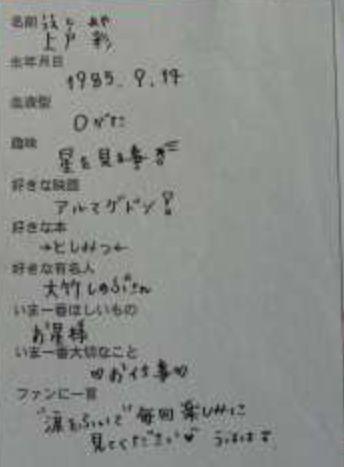 名前 うえと あや
上戸 彩
生年月日
1985. 9. 14
血液型
Oがた
趣味
星を見る事
好きな映画
アルマゲドン!
好きな本
→としみつ←
好きな有名人
大竹しのぶさん
いま一番ほしいもの
お星様
いま一番大切なこと
お仕事
ファンに一言
"涙をふいて" 毎回楽しみに
見てください♥